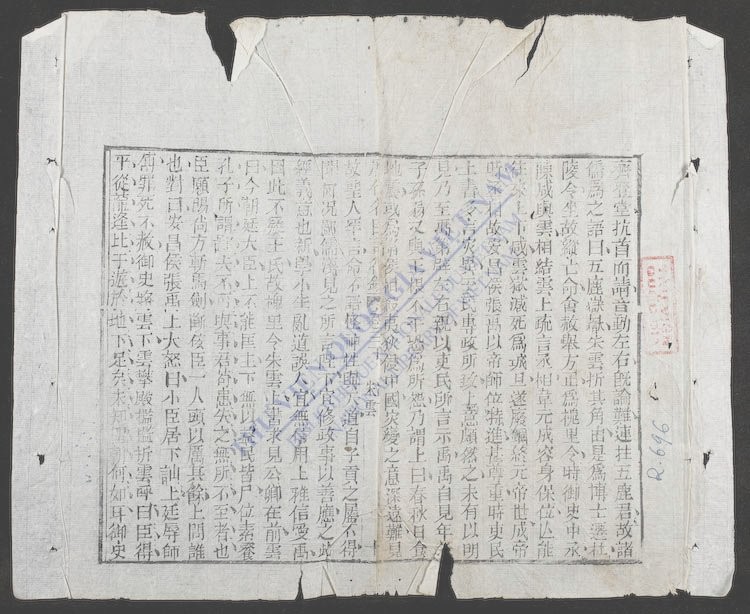 齊登堂抗首而請音動左右既論難連拄五鹿君故諸
儒爲之語曰五鹿嶽嶽朱雲折其角由是爲博士遷杜
陵令坐故縱亡命會赦舉方正爲槐里令時御史中丞
陳咸與雲相結雲上疏言丞相韋元成容身保位亾能
往來上下咸雲獄減死爲城旦遂廢錮終元帝世成帝
時丞相故安昌侯張禹以帝師位特進甚尊重時吏民
上書多言災異王氏專政所致上意頗然之未有以明
見乃至禹第辟左右親以吏民所言示禹禹自見年老
子孫弱又與王根不平恐爲所怨乃謂上曰春秋日食
地震或爲諸侯相殺夷狄侵中國災變之意深遠難見
朱雲
十
故聖人罕言命不語怪神性與天道自子貢之屬不得
聞何況淺見鄙儒之所言陛下宜修政事以善應之此
經義意也新學小生亂道誤人宜無信用上雅信愛禹
因此不疑王氏故槐里令朱雲上書求見公卿在前雲
曰今朝廷大臣上不能匡主下無以益民皆尸位素餐
孔子所謂鄙夫不可與事君苟患失之無所不至者也
臣願賜尚方斬馬劍斷佞臣一人頭以厲其餘上問誰
也對曰安昌侯張禹上大怒曰小臣居下訕上廷辱師
傅罪死不赦御史將雲下雲攀殿檻檻折雲呼曰臣得
下從龍逢比干遊於地下足矣未知聖朝何如耳御史
THƯ VIỆN QUỐC GIA VIỆT NAM
NATIONAL LIBRARY OF VIETNAM
R.696